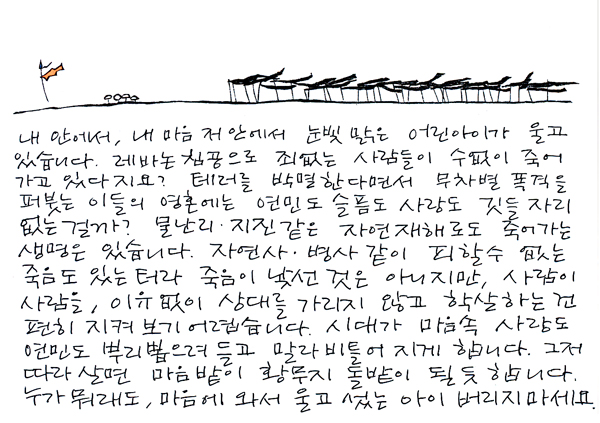 내 안에서, 내 마음 저 안에서 눈빛 맑은 어린아이가 울고
있습니다. 레바논 침공으로 죄없는 사람들이 수없이 죽어
가고 있다지요? 테러를 박멸한다면서 무차별 폭격을
퍼붓는 이들의 영혼에는 연민도 슬픔도 사랑도 깃들 자리
없는 걸까? 물난리·지진같은 자연재해로도 죽어가는
생명은 있습니다. 자연사·병사 같이 피할수 없는
죽음도 있는 터라 죽음이 낯선 것은 아니지만, 사람이
사람을, 이유없이 상대를 가리지 않고 학살하는 건
편히 지켜 보기 어렵습니다. 시대가 마음속 사랑도
연민도 뿌리뽑으려 들고 말라 비틀어 지게 합니다. 그저
따라 살면 마음밭이 황무지 돌밭이 될 듯 합니다.
누가 뭐래도, 마음에 와서 울고 섰는 아이 버리지마세요.